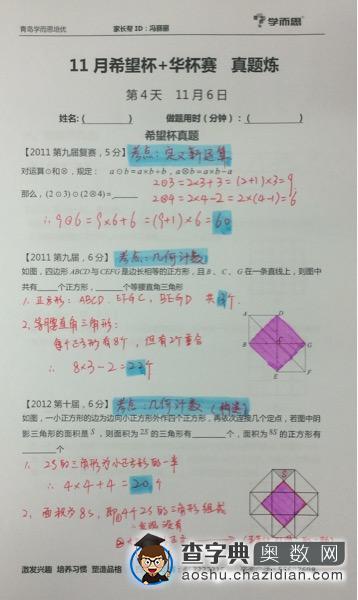 青岛学而思培优
家长帮 ID：冯丽丽
学而思
11 月希望杯+华杯赛 真题炼
第 4 天 11 月 6 日
姓名: ( ) 做题用时（分钟）: ( )
希望杯真题
【2011 第九届复赛，5 分】考点：定义新运算
对运算⊙和⊗，规定： a⊙b=a×b+b，a⊗b=a×b−a
2⊙3=2×3+3=(2+1)×3=9
那么，(2⊙3)⊙(2⊗4)=
2⊗4=2×4-2=2×(4-1)=6
∴ 9⊙6=9×6+6=(9+1)×6=60
【2011 第九届，6 分】考点：几何计数
如图，四边形 ABCD 与 CEFG 是边长相等的正方形，且 B、C、G 在一条直线上，则图中
共有 个正方形， 个等腰直角三角形
1、正方形：ABCD、EFGC、BEGD 共3个.
2、等腰直角三角形：
每个正方形有8个，但有2个重合
∴ 8×3-2=22个
A D
B C G
E F
【2012 第十届，6 分】考点：几何计数（构造）
如图，一小正方形的边为边向小正方形外作四个正方形，再依次连接几个定点，若图中阴
影三角形的面积是 S，则面积为 2S 的三角形有 个，面积为 8S 的正方形有
个
1、2S的三角形为小正方形的一半
∴ 4×4+4=20个
2、面积为8S，即4个2S的三角形组成
S
激发兴趣 培养习惯 塑造品格
查字典奥数网
aoshu.chazidian.com